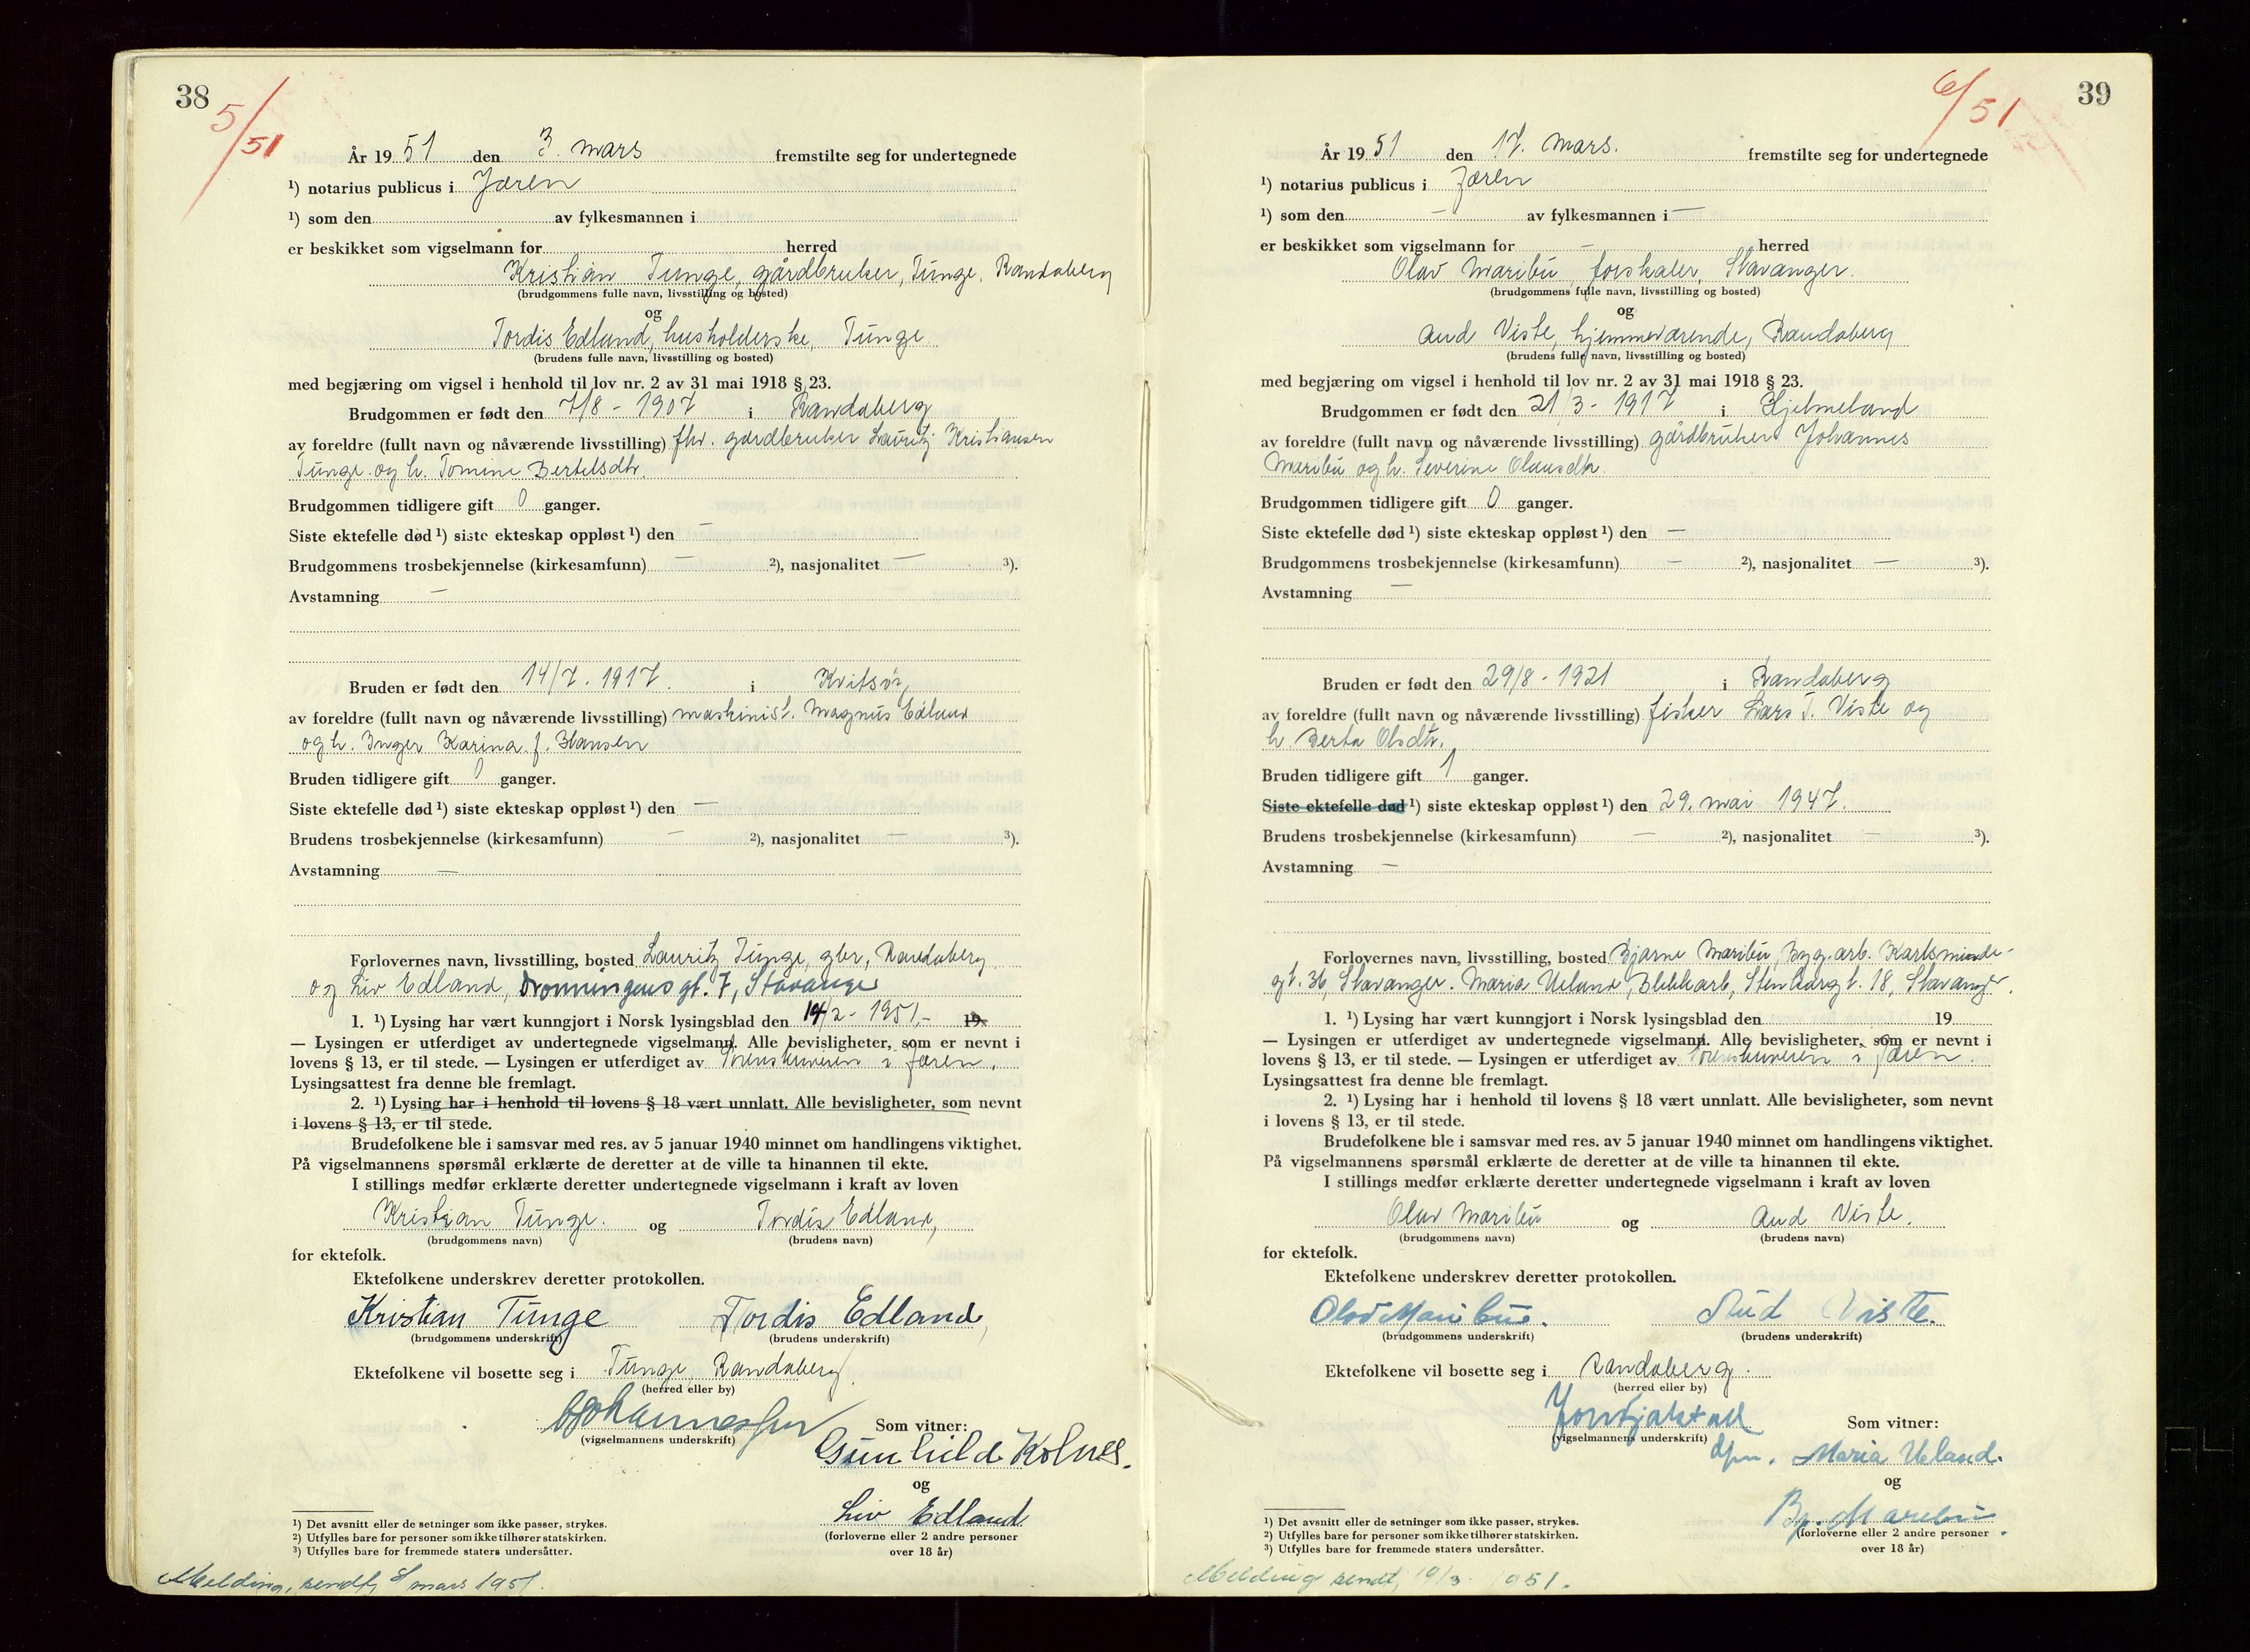 38
5/51
År 1951 den 3. mars fremstilte seg for undertegnede
¹) notarius publicus i Jæren
¹) som den av fylkesmannen i
er beskikket som vigselmann for herred
Kristian Tunge, gårdbruker, Tunge, Randaberg
(brudgommens fulle navn, livsstilling og bosted)
og
Tordis Edland, husholderske, Tunge
(brudens fulle navn, livsstilling og bosted)
med begjæring om vigsel i henhold til lov nr. 2 av 31 mai 1918 § 23.
Brudgommen er født den 7/8 - 1907 i Randaberg
av foreldre (fullt navn og nåværende livsstilling) fhv. gårdbruker Lauritz Kristiansen
Tunge og h. Tomine Bertelsdtr.
Brudgommen tidligere gift 0 ganger.
Siste ektefelle død ¹) siste ekteskap oppløst ¹) den —
Brudgommens trosbekjennelse (kirkesamfunn) — ²), nasjonalitet — ³).
Avstamning —
Bruden er født den 14/7. 1917. i Kvitsøy
av foreldre (fullt navn og nåværende livsstilling) maskinist. Magnus Edland
og h. Inger Karina f. Hansen
Bruden tidligere gift 0 ganger.
Siste ektefelle død ¹) siste ekteskap oppløst ¹) den —
Brudens trosbekjennelse (kirkesamfunn) — ²), nasjonalitet — ³).
Avstamning —
Forlovernes navn, livsstilling, bosted Lauritz Tunge, gbr, Randaberg
og Liv Edland, Dronningens gt. 7, Stavanger
1. ¹) Lysing har vært kunngjort i Norsk lysingsblad den 14/2 - 1951.- 19
— Lysingen er utferdiget av undertegnede vigselmann. Alle bevisligheter, som er nevnt i
lovens § 13, er til stede. — Lysingen er utferdiget av Sorenskriveren i Jæren.
Lysingsattest fra denne ble fremlagt.
2. ¹) Lysing har i henhold til lovens § 18 vært unnlatt. Alle bevisligheter, som nevnt
i lovens § 13, er til stede.
Brudefolkene ble i samsvar med res. av 5 januar 1940 minnet om handlingens viktighet.
På vigselmannens spørsmål erklærte de deretter at de ville ta hinannen til ekte.
I stillings medfør erklærte deretter undertegnede vigselmann i kraft av loven
Kristian Tunge. og Tordis Edland,
(brudgommens navn) (brudens navn)
for ektefolk.
Ektefolkene underskrev deretter protokollen.
Kristian Tunge Tordis Edland
(brudgommens underskrift) (brudens underskrift)
Ektefolkene vil bosette seg i Tunge, Randaberg
(herred eller by)
Som vitner:
(vigselmannens underskrift)
Gunhild Kolnes.
og
Liv Edland
(forloverne eller 2 andre personer
over 18 år)
¹) Det avsnitt eller de setninger som ikke passer, strykes.
²) Utfylles bare for personer som ikke tilhører statskirken.
³) Utfylles bare for fremmede staters undersåtter.
Melding sendt, mars 1951.
39
6/51
År 1951 den 17. mars. fremstilte seg for undertegnede
¹) notarius publicus i Jæren
¹) som den — av fylkesmannen i —
er beskikket som vigselmann for — herred
Olav Maribu, forskaler, Stavanger.
(brudgommens fulle navn, livsstilling og bosted)
og
Aud Viste, hjemmeværende, Randaberg
(brudens fulle navn, livsstilling og bosted)
med begjæring om vigsel i henhold til lov nr. 2 av 31 mai 1918 § 23.
Brudgommen er født den 21/3 - 1917 i Hjelmeland
av foreldre (fullt navn og nåværende livsstilling) gårdbruker Johannes
Maribu og h. Severine Olausdtr.
Brudgommen tidligere gift 0 ganger.
Siste ektefelle død ¹) siste ekteskap oppløst ¹) den —
Brudgommens trosbekjennelse (kirkesamfunn) — ²), nasjonalitet — ³).
Avstamning —
Bruden er født den 29/8 - 1921 i Randaberg
av foreldre (fullt navn og nåværende livsstilling) fisker Lars T. Viste og
h. Berta Olsdtr.
Bruden tidligere gift 1 ganger.
Siste ektefelle død ¹) siste ekteskap oppløst ¹) den 29. mai 1947.
Brudens trosbekjennelse (kirkesamfunn) — ²), nasjonalitet — ³).
Avstamning —
Forlovernes navn, livsstilling, bosted Bjarne Maribu, Byg.arb. Karlsminde-
gt. 36, Stavanger. Maria Ueland, Blikkarb, 18, Stavanger.
1. ¹) Lysing har vært kunngjort i Norsk lysingsblad den 19
— Lysingen er utferdiget av undertegnede vigselmann. Alle bevisligheter, som er nevnt i
lovens § 13, er til stede. — Lysingen er utferdiget av Sorenskriveren i Jæren.
Lysingsattest fra denne ble fremlagt.
2. ¹) Lysing har i henhold til lovens § 18 vært unnlatt. Alle bevisligheter, som nevnt
i lovens § 13, er til stede.
Brudefolkene ble i samsvar med res. av 5 januar 1940 minnet om handlingens viktighet.
På vigselmannens spørsmål erklærte de deretter at de ville ta hinannen til ekte.
I stillings medfør erklærte deretter undertegnede vigselmann i kraft av loven
Olav Maribu og Aud Viste.
(brudgommens navn) (brudens navn)
for ektefolk.
Ektefolkene underskrev deretter protokollen.
Olav Maribu. Aud Viste.
(brudgommens underskrift) (brudens underskrift)
Ektefolkene vil bosette seg i Randaberg.
(herred eller by)
Som vitner:
(vigselmannens underskrift)
Maria Ueland.
og
Bj. Maribu
(forloverne eller 2 andre personer
over 18 år)
¹) Det avsnitt eller de setninger som ikke passer, strykes.
²) Utfylles bare for personer som ikke tilhører statskirken.
³) Utfylles bare for fremmede staters undersåtter.
Melding sendt, 19/3 1951.